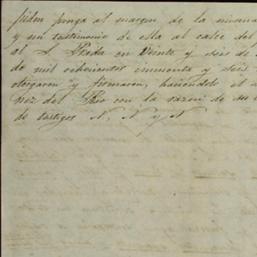 piden ponga al margen de la misma
y un testimonio de ella al calce del
al S. Rueda en Veinte y seis de
de mil ochocientos cincuenta y seis
otorgaron y firmaron, haciendolo el
nez del Rio con la razon de su
de testigos N. N y N